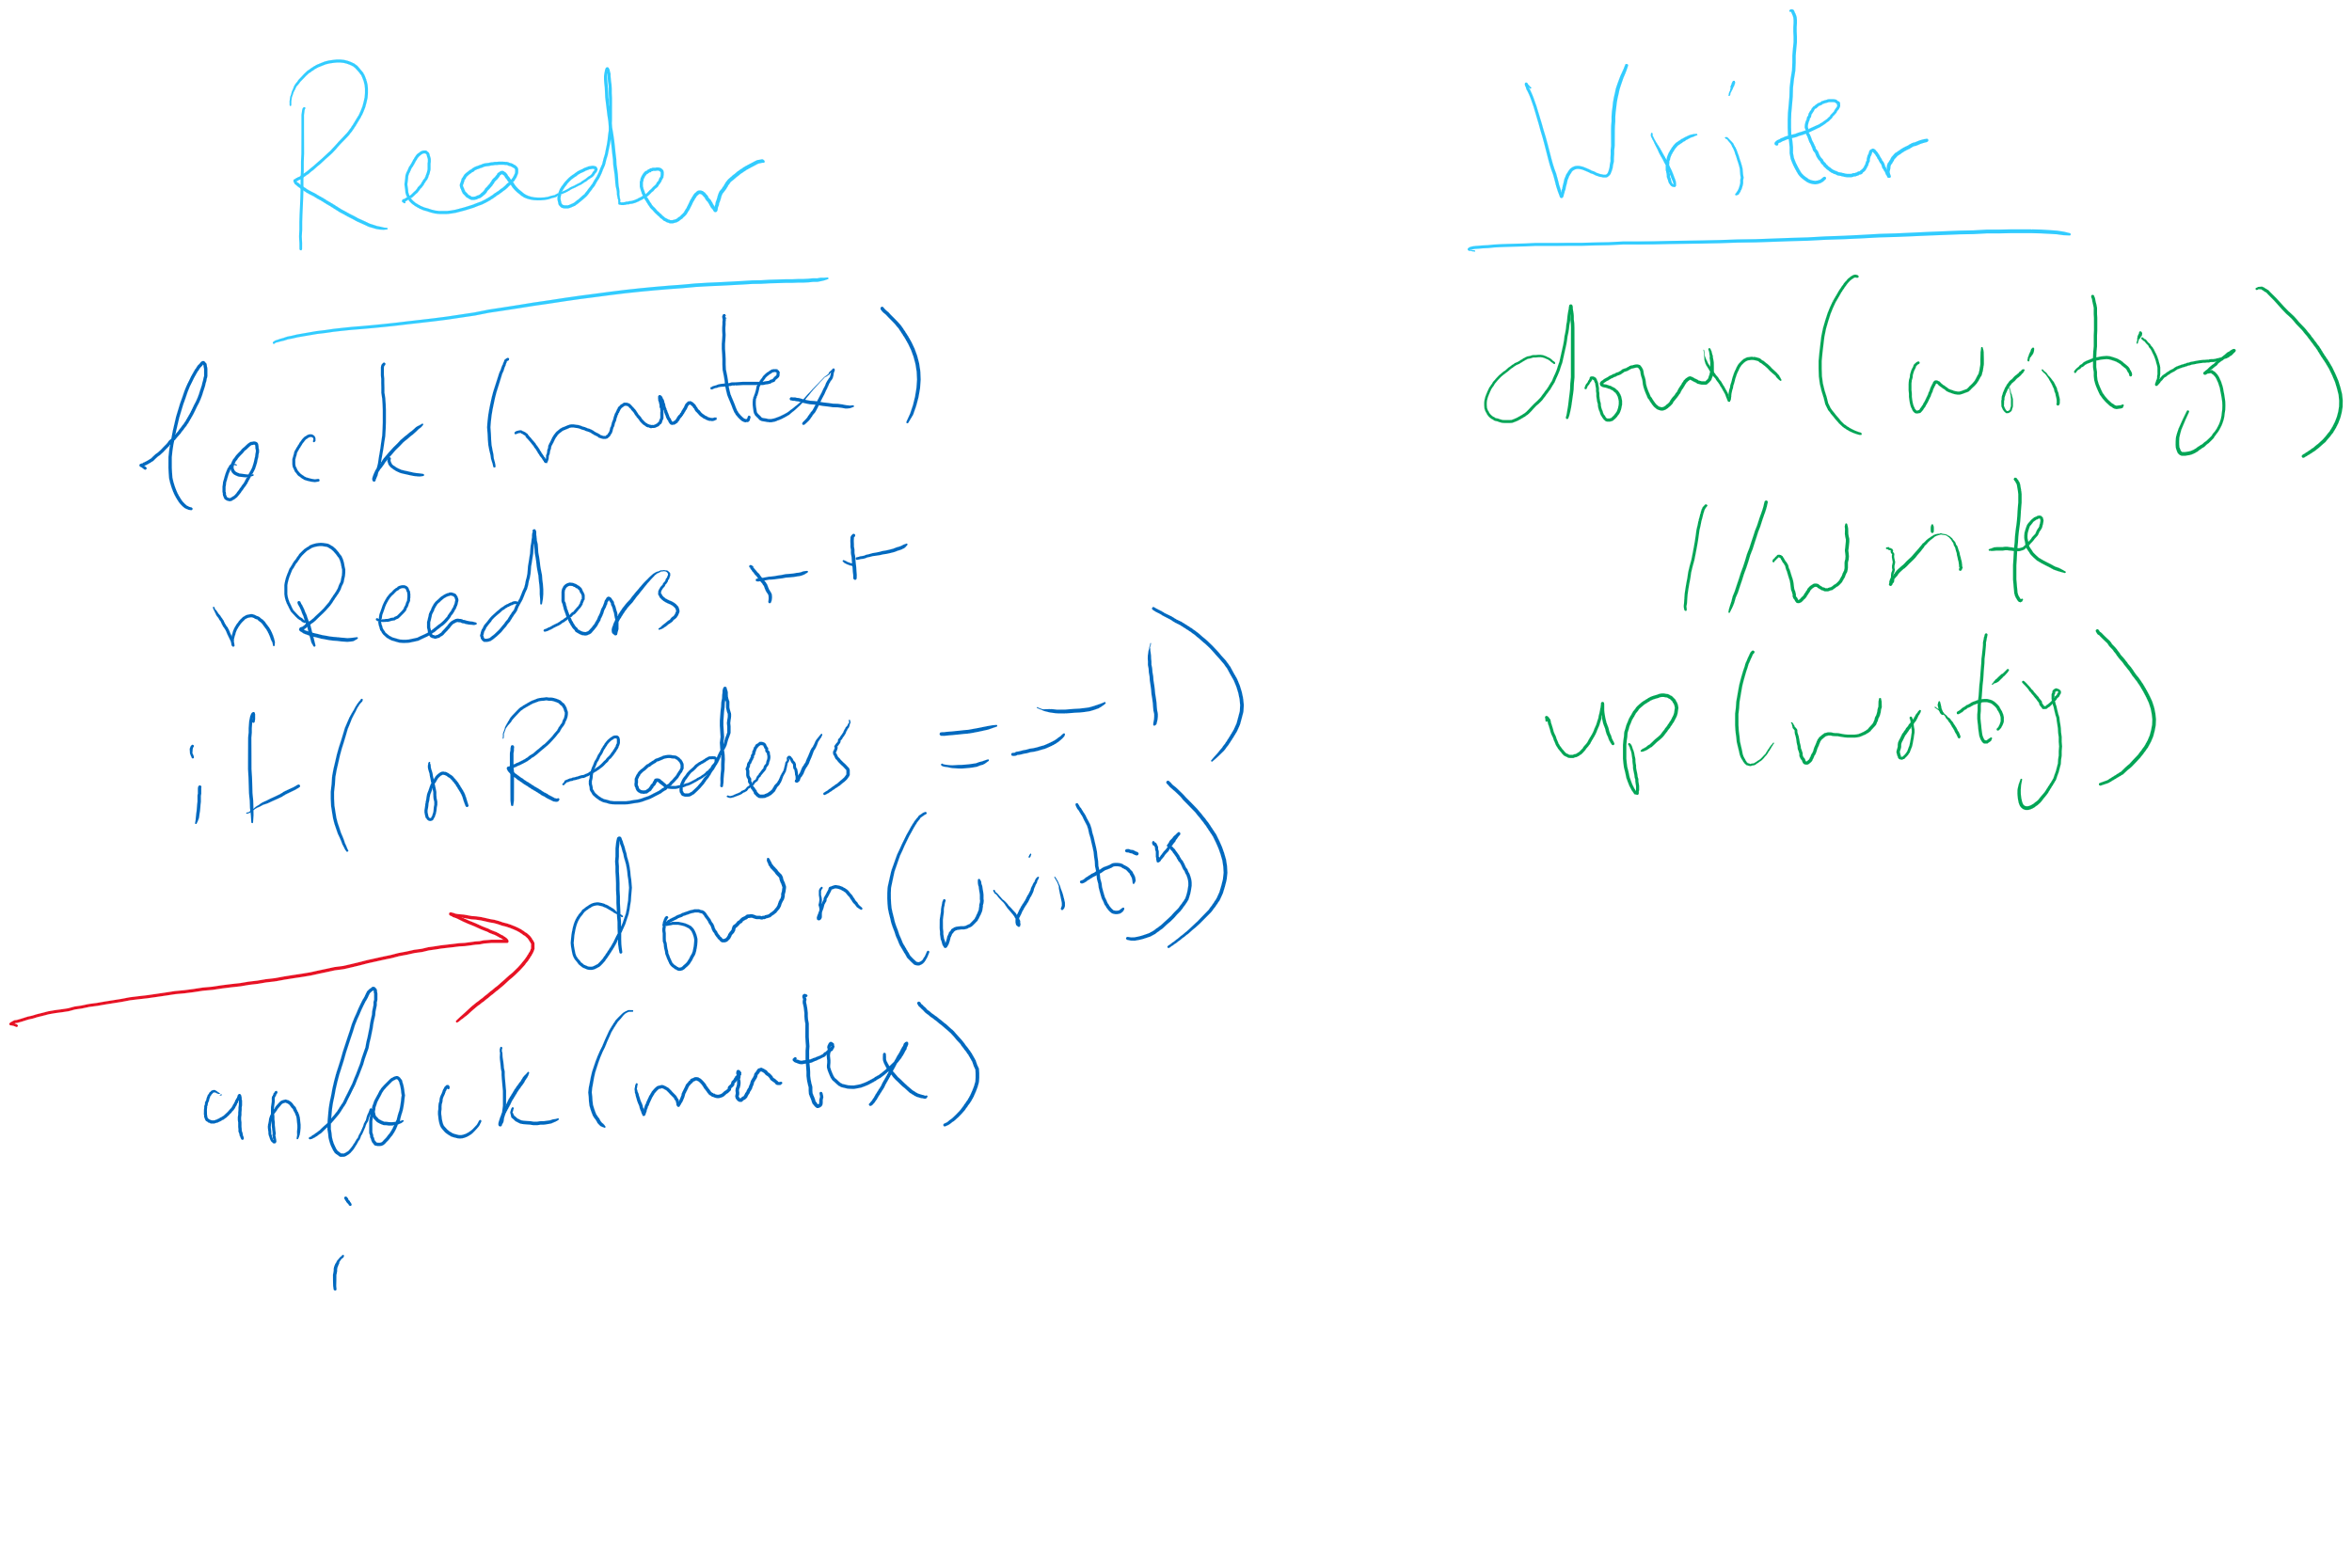 Reader
lock (mutex)
nReaders ++
if ( nReaders == 1)
down (writing)
unlock (mutex)
:
Writer
down ( writing)
// write
up ( writing )